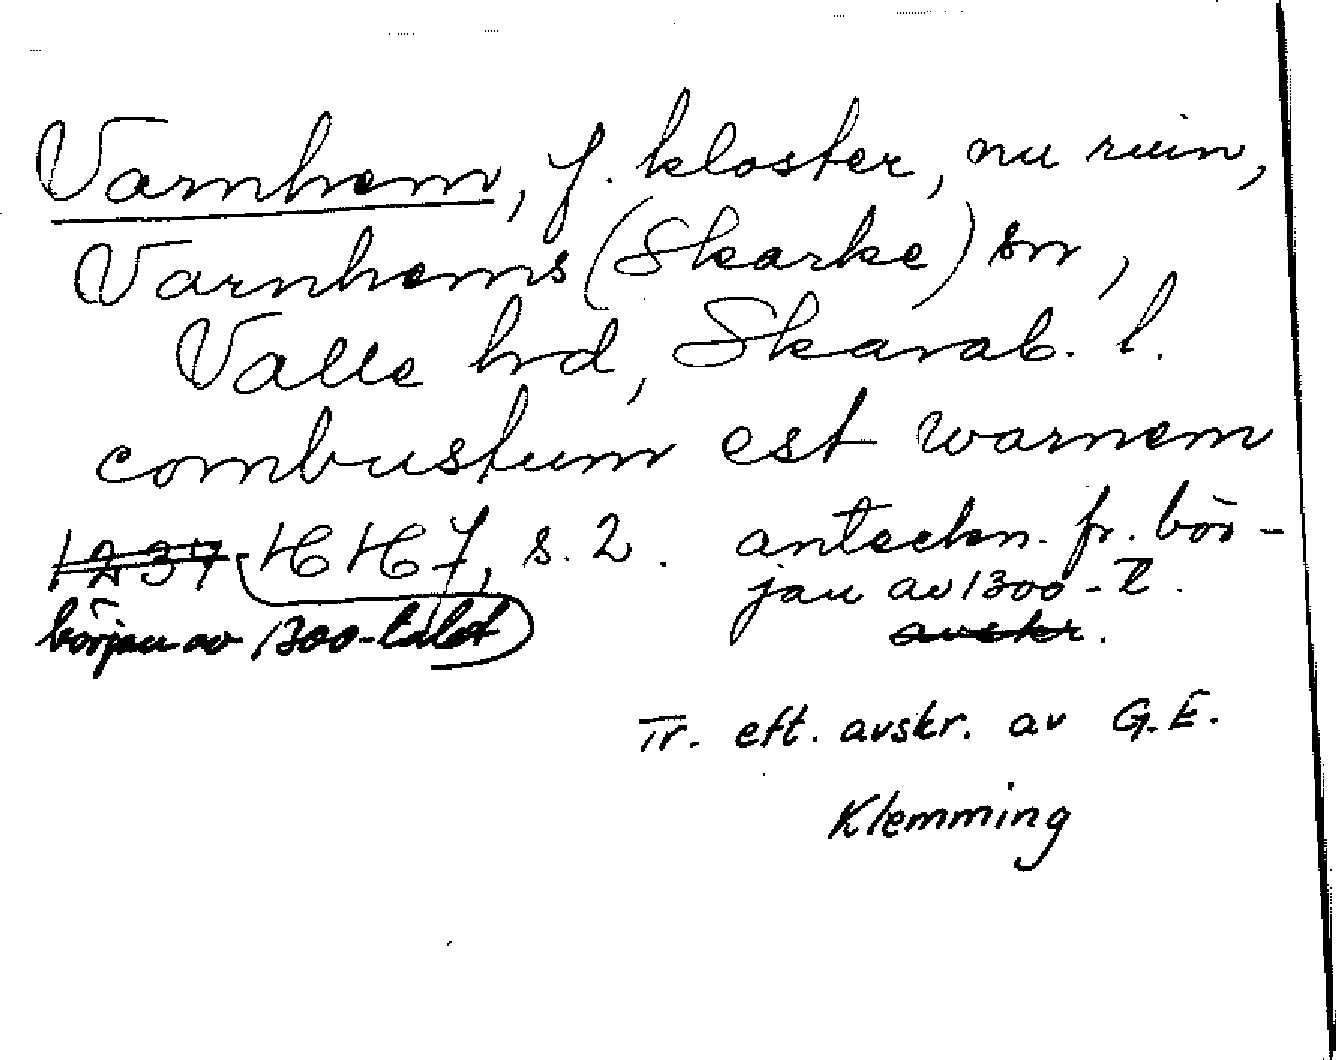 Varnhem, f. kloster, nu ruin,
Varnhems (Skarke) sn,
Valle hrd, Skarab. l.
combustum est warnem
1237 HH 7, s. 2. anteckn. fr. bör-
jan av 1300-t.
början av 1300-talet
avskr.
Tr. eft. avskr. av G.E.
Klemming